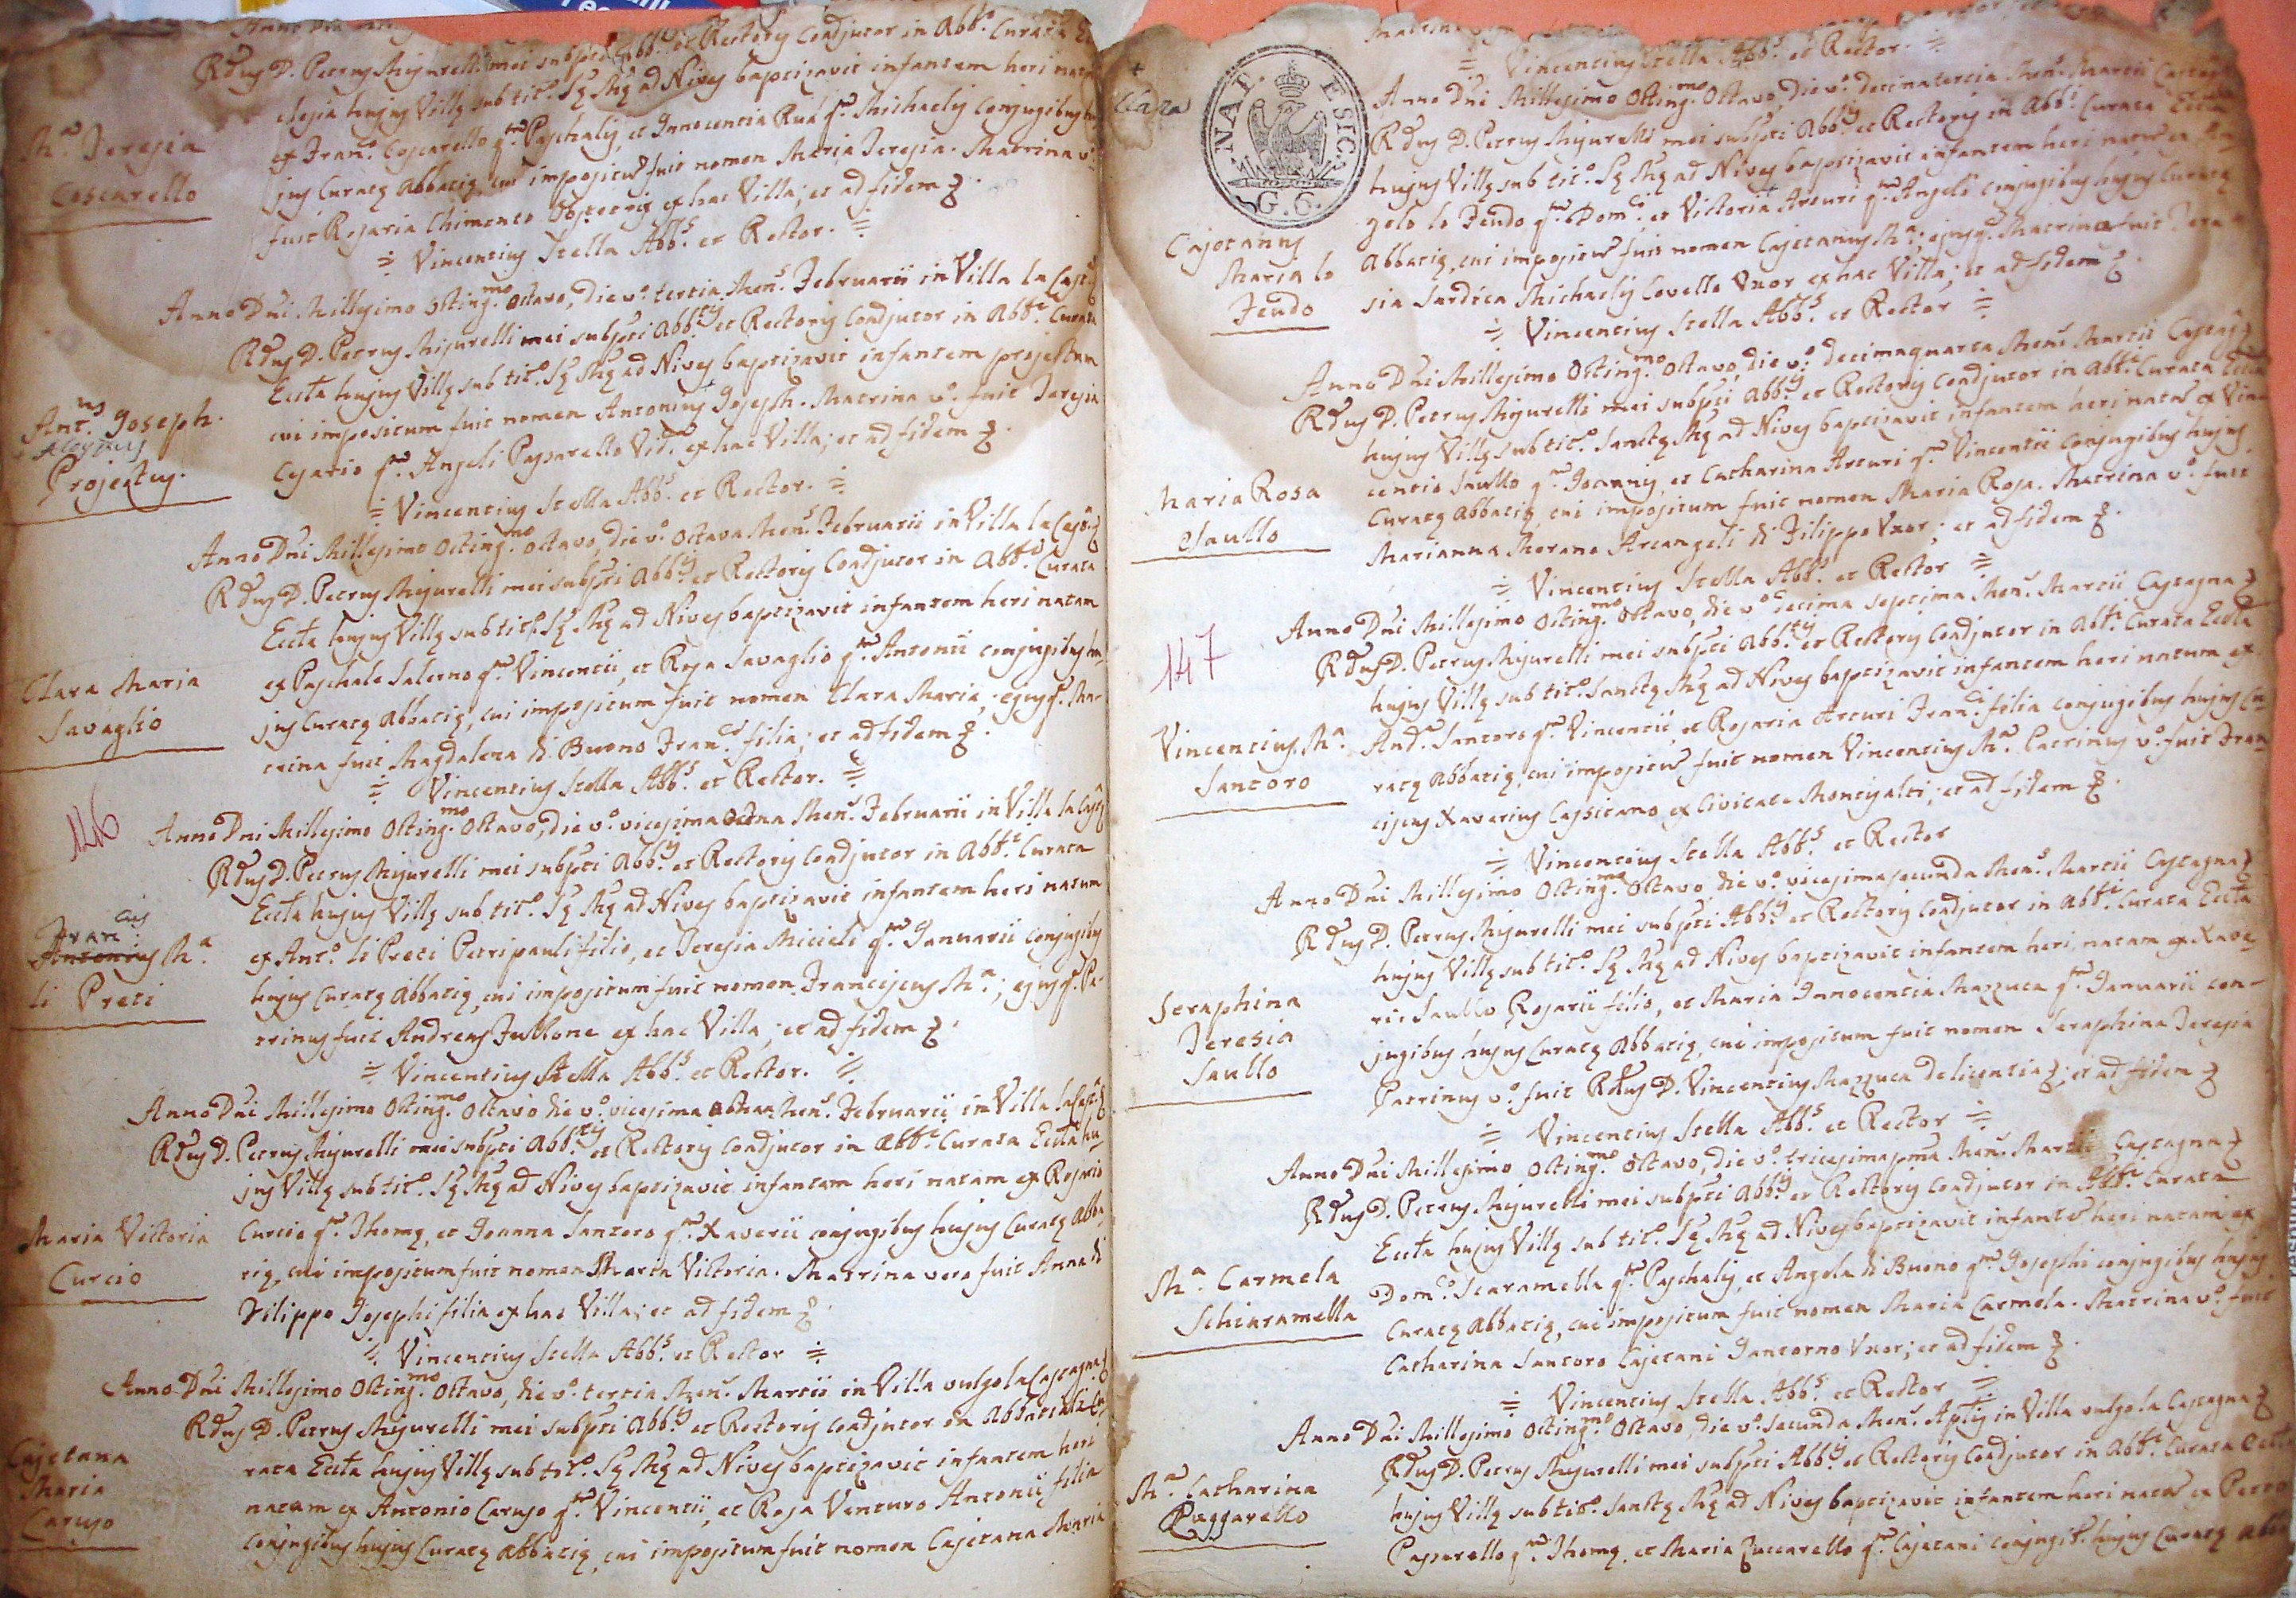 Rdus D. Petrus Misurelli mei subpti Abb.is et Rectoris Coadjutor in Abb.e Curata
clesia hujus Villę sub tit.o Sę Mę ad Nives baptizavit infantem heri
M.a Teresia
Coscarello
ex Fran.o Coscarello q.m Paschalis, et Innocentia Ruà q.m Michaelis conjugibus
jus Curatę Abbatię, cui impositũ fuit nomen Maria Teresia. Matrina v.o
fuit Rosaria Chimento Obstetrix ex hac Villa; et ad fidem
= Vincentius Stella Abb.s et Rector. =
Anno Dni Millesimo Octing.mo Octavo, die v.o tertia Men.s Februarii in Villa la
Rdus D. Petrus Misurelli mei subpti Abb.tis et Rectoris Coadjutor in Abb.e Curata
Eccta hujus Villę sub tit.o Sę Mę ad Nives baptizavit infantem projectum
Ant.us Joseph.
Aloysius
Projectus.
cui impositum fuit nomen Antonius Joseph. Matrina v.o fuit Teresia
Cesario q.m Angeli Passarello Vid.a ex hac Villa; et ad fidem
= Vincentius Stella Abb.s et Rector. =
Anno Dni Millesimo Octing.mo Octavo, die v.o Octava Men.s Februarii in Villa la
Rdus D. Petrus Misurelli mei subpti Abb.is et Rectoris Coadjutor in Abb.e Curata
Eccta hujus Villę sub tit.o Sę Mę ad Nives baptizavit infantem heri natam
Clara Maria
Savaglio
ex Paschale Salerno q.m Vincentii, et Rosa Savaglio q.m Antonii conjugibus hu-
jus Curatę Abbatię, cui impositum fuit nomen Clara Maria; ejusq. Ma-
trina fuit Magdalena di Buono Fran.ci filia; et ad fidem
= Vincentius Stella Abb.s et Rector. =
146
Anno Dni Millesimo Octing.mo Octavo, die v.o vicesima Men.s Februarii in Villa la
Rdus D. Petrus Misurelli mei subpti Abb.is et Rectoris Coadjutor in Abb.e Curata
Eccta hujus Villę sub tit.o Sę Mę ad Nives baptizavit infantem heri natum
Francius
Antonius M.a
li Preti
ex Ant.o li Preti Petripauli filio, et Teresia Micieli q.m Januarii conjugibus
hujus Curatę Abbatię, cui impositum fuit nomen Franciscus M.a; ejusq. Pa-
trinus fuit Andreas Fullone ex hac Villa; et ad fidem
= Vincentius Stella Abb.s et Rector. =
Anno Dni Millesimo Octing.mo Octavo die v.o vicesima Men.s Februarii in Villa
Rdus D. Petrus Misurelli mei subpti Abb.tis et Rectoris Coadjutor in Abb.e Curata Eccta hu-
jus Villę sub tit.o Sę Mę ad Nives baptizavit infantem heri natam ex Rosario
Maria Victoria
Curcio
Curcio q.m Thomę, et Joanna Santoro q.m Xaverii conjugibus hujus Curatę Abba-
tię, cui impositum fuit nomen Maria Victoria. Matrina vero fuit Anna di
Filippo Josephi filia ex hac Villa; et ad fidem
= Vincentius Stella Abb.s et Rector =
Anno Dni Millesimo Octing.mo Octavo, die v.o tertia Men.s Martii in Villa vulgo la Castagna
Rdus D. Petrus Misurelli mei subpti Abb.is et Rectoris Coadjutor in Abbatiali Cu-
rata Eccta hujus Villę sub tit.o Sę Mę ad Nives baptizavit infantem heri
Cajetana
Maria
Caruso
natam ex Antonio Caruso q.m Vincentii, et Rosa Venturo Antonii filia
conjugibus hujus Curatę Abbatię, cui impositum fuit nomen Cajetana Maria
Clara
= Vincentius Stella Abb.s et Rector. =
NAP. ESIC. G. 6.
Anno Dni Millesimo Octing.mo Octavo, die v.o decimatertia Men.s Martii
Rdus D. Petrus Misurelli mei subpti Abb.is et Rectoris in Abb.i Curata Eccta
hujus Villę sub tit.o Sę Mę ad Nives baptizavit infantem heri natũ ex
Cajetanus
Maria lo
Feudo
gelo lo Feudo q.m Dom.ci, et Victoria Arcuri q.m Angeli conjugibus hujus Curatę
Abbatię, cui impositũ fuit nomen Cajetanus M.a; ejusq. Matrina fuit
sia Sardica Michaelis Covello Uxor ex hac Villa; et ad fidem
= Vincentius Stella Abb.s et Rector =
Anno Dni Millesimo Octing.mo Octavo, die v.o decimaquarta Men.s Martii
Rdus D. Petrus Misurelli mei subpti Abb.is et Rectoris Coadjutor in Abb.e Curata Eccta
hujus Villę sub tit.o Sanctę Mę ad Nives baptizavit infantem heri natã ex Vin-
Maria Rosa
Saullo
centio Saullo q.m Joannis, et Catharina Arcuri q.m Vincentii conjugibus hujus
Curatę Abbatię, cui impositum fuit nomen Maria Rosa. Matrina v.o fuit
Marianna Morano Arcangeli di Filippo Uxor; et ad fidem
= Vincentius Stella Abb.s et Rector =
147
Anno Dni Millesimo Octing.mo Octavo, die v.o decima septima Men.s Martii Castagna
Rdus D. Petrus Misurelli mei subpti Abb.tis et Rectoris Coadjutor in Abb.i Curata Eccta
hujus Villę sub tit.o Sanctę Mę ad Nives baptizavit infantem heri natum ex
Vincentius M.a
Santoro
And.a Santoro q.m Vincentii et Rosaria Arcuri Fran.ci filia conjugibus hujus Cu-
ratę Abbatię, cui impositũ fuit nomen Vincentius M.a Patrinus v.o fuit Fran-
ciscus Xaverius Cassitano ex Civitate Montisalti; et ad fidem
= Vincentius Stella Abb.s et Rector
Anno Dni Millesimo Octing.mo Octavo, die v.o vicesimasecunda Men.s Martii Castagna
Rdus D. Petrus Misurelli mei subpti Abb.is et Rectoris Coadjutor in Abb.i Curata Eccta
hujus Villę sub tit.o Sę Mę ad Nives baptizavit infantem heri natam ex Xave-
Seraphina
Teresia
Saullo
rio Saullo Rosarii filio, et Maria Innocentia Mazzuca q.m Januarii con-
jugibus hujus Curatę Abbatię, cui impositum fuit nomen Seraphina Teresia
Patrinus v.o fuit Rdus D. Vincentius Mazzuca de licentia; et ad fidem
= Vincentius Stella Abb.s et Rector =
Anno Dni Millesimo Octing.mo Octavo, die v.o tricesimapma Men.s Martii Castagna
Rdus D. Petrus Misurelli mei subpti Abb.is et Rectoris Coadjutor in Abb.i Curata
Eccta hujus Villę sub tit.o Sę Mę ad Nives baptizavit infantẽ heri natam ex
M.a Carmela
Schiaramella
Dom.co Scaramella q.m Paschalis, et Angela di Buono q.m Josephi conjugibus hujus
Curatę Abbatię, cui impositum fuit nomen Maria Carmela. Matrina v.o fuit
Catharina Santoro Cajetani Santorno Uxor; et ad fidem
= Vincentius Stella Abb.s et Rector =
Anno Dni Millesimo Octing.mo Octavo, die v.o secunda Men.s Aplis in Villa vulgo la Castagna
Rdus D. Petrus Misurelli mei subpti Abb.is et Rectoris Coadjutor in Abb.i Curata
hujus Villę sub tit.o Sanctę Mę ad Nives baptizavit infantem heri natã ex Petro
M.a Catharina
Passarello
Passarello q.m Thomę, et Maria Zuccarello q.m Cajetani conjugib.s hujus Curatę